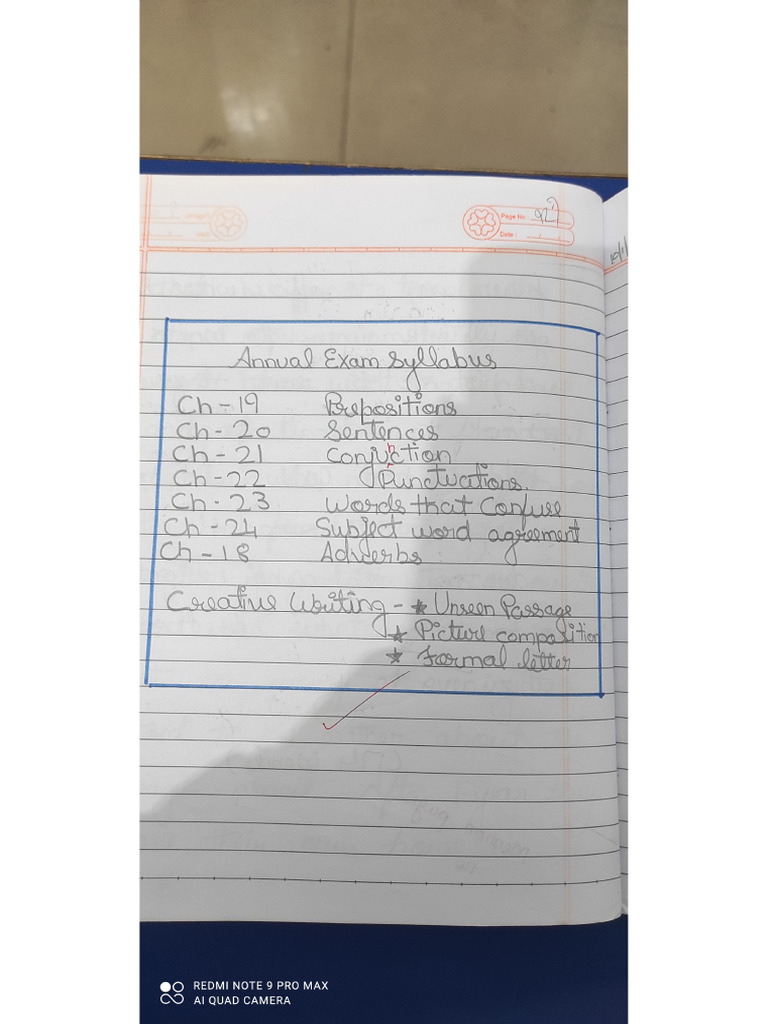 Page No.
Date :
Annual Exam Syllabus
Ch - 19 Prepositions
Ch - 20 Sentences
Ch - 21 Conjunction
Ch - 22 Punctuations
Ch - 23 Words that Confuse
Ch - 24 Subject word agreement
Ch - 18 Adverbs
Creative Writing - ★ Unseen Passage
★ Picture composition
★ Formal letter
REDMI NOTE 9 PRO MAX
AI QUAD CAMERA